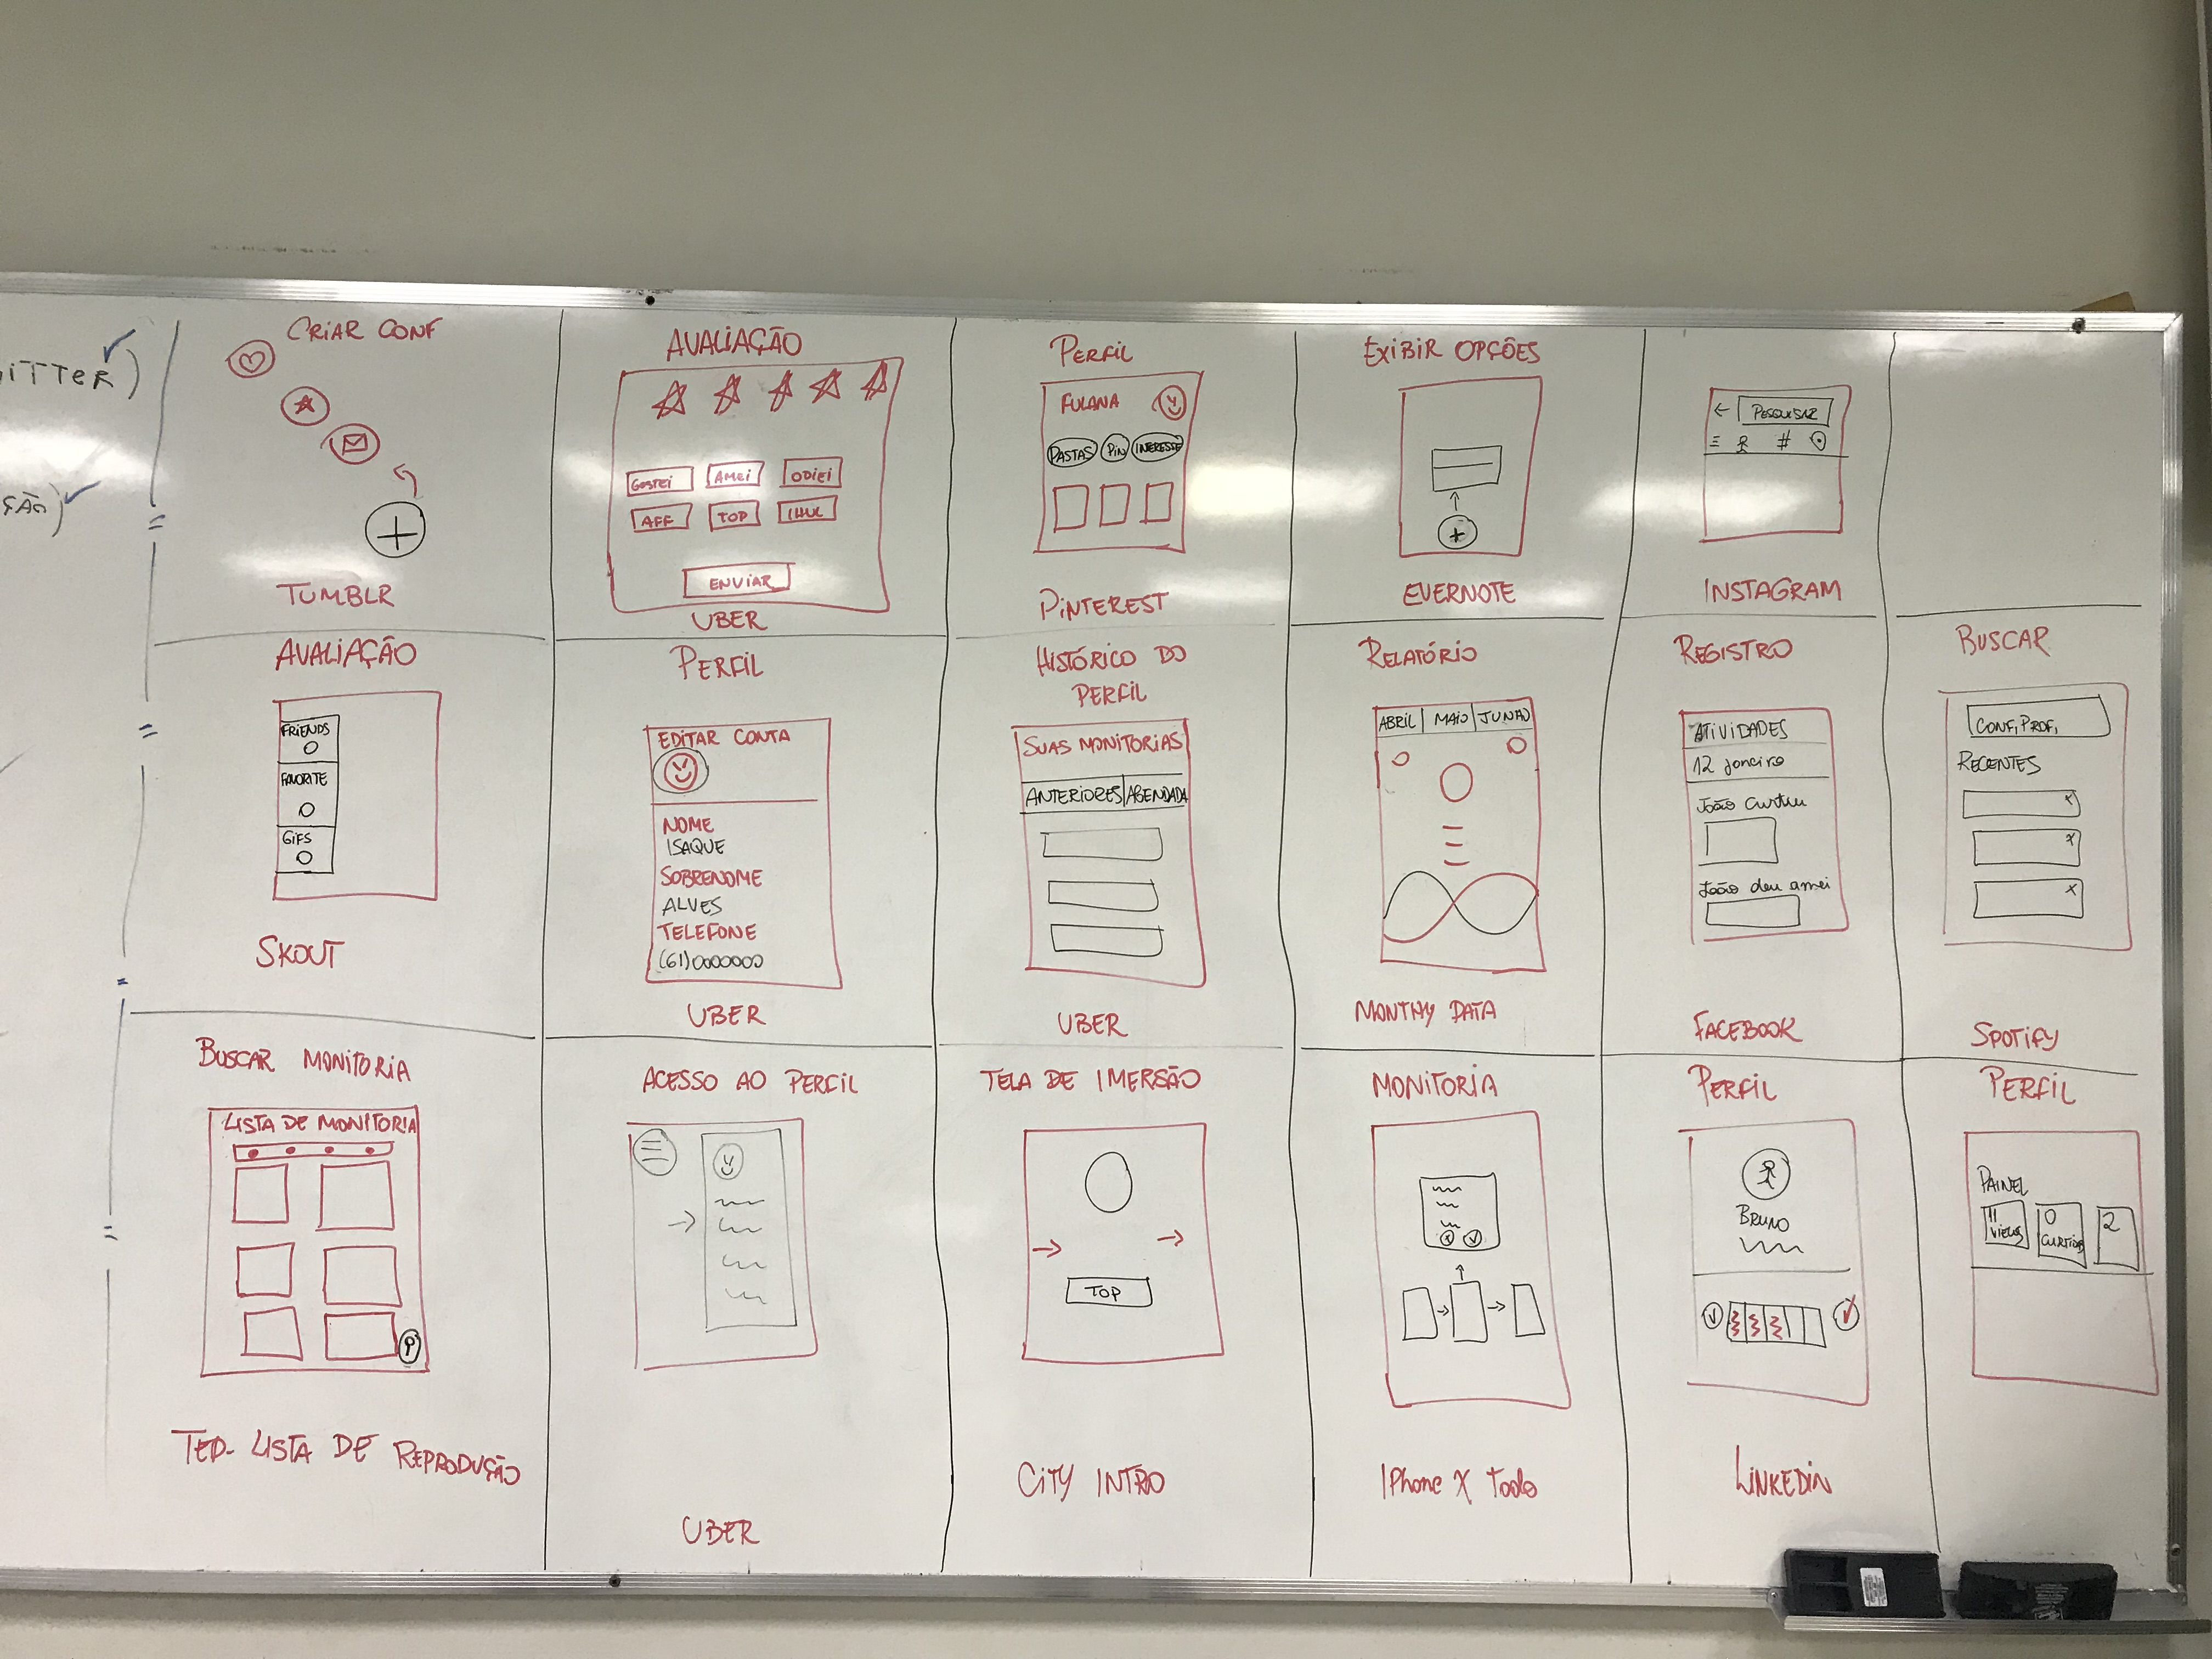 ITTER)
ÇÃO)
CRIAR CONF
TUMBLR
AVALIAÇÃO
GOSTEI AMEI ODIEI
AFF TOP IHUL
ENVIAR
UBER
PERFIL
FULANA
PASTAS PIN INTERESSE
PINTEREST
EXIBIR OPÇÕES
+
EVERNOTE
← PESQUISAR
#
INSTAGRAM
AVALIAÇÃO
FRIENDS
FAVORITE
GIFS
SKOUT
PERFIL
EDITAR CONTA
NOME
ISAQUE
SOBRENOME
ALVES
TELEFONE
(61)0000000
UBER
HISTÓRICO DO
PERFIL
SUAS MONITORIAS
ANTERIORES AGENDADA
UBER
RELATÓRIO
ABRIL MAIO JUNHO
MONTHY DATA
REGISTRO
ATIVIDADES
12 janeiro
João curtiu
João deu amei
FACEBOOK
BUSCAR
CONF, PROF,
RECENTES
x
x
x
SPOTIFY
BUSCAR MONITORIA
LISTA DE MONITORIA
P
TED- LISTA DE REPRODUÇÃO
ACESSO AO PERFIL
UBER
TELA DE IMERSÃO
TOP
CITY INTRO
MONITORIA
IPhone X Todo
PERFIL
BRUNO
LINKEDIN
PERFIL
PAINEL
11 0 2
VIEWS CURTIDAS